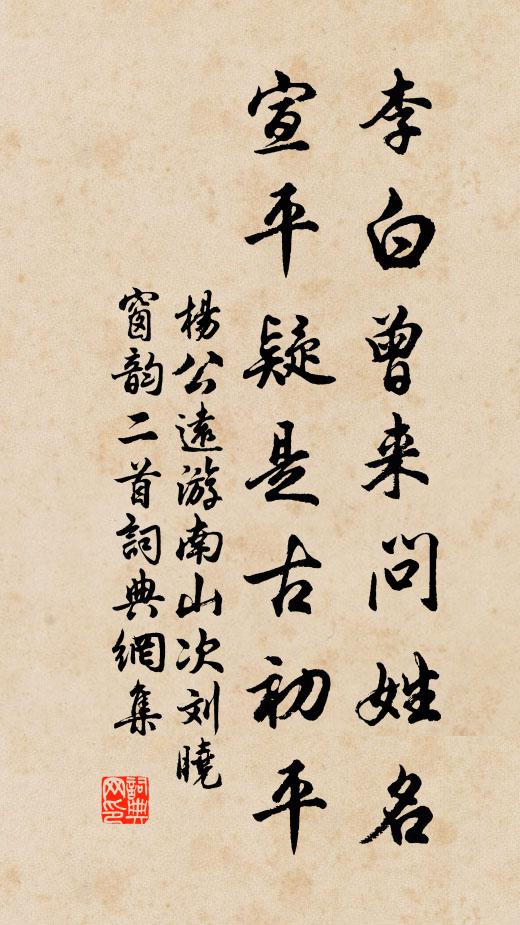 李白曾来問姓名
宣平疑是古初平
楊公遠游南山次刘曉
窗韵二首詞典網集
詞典
网印